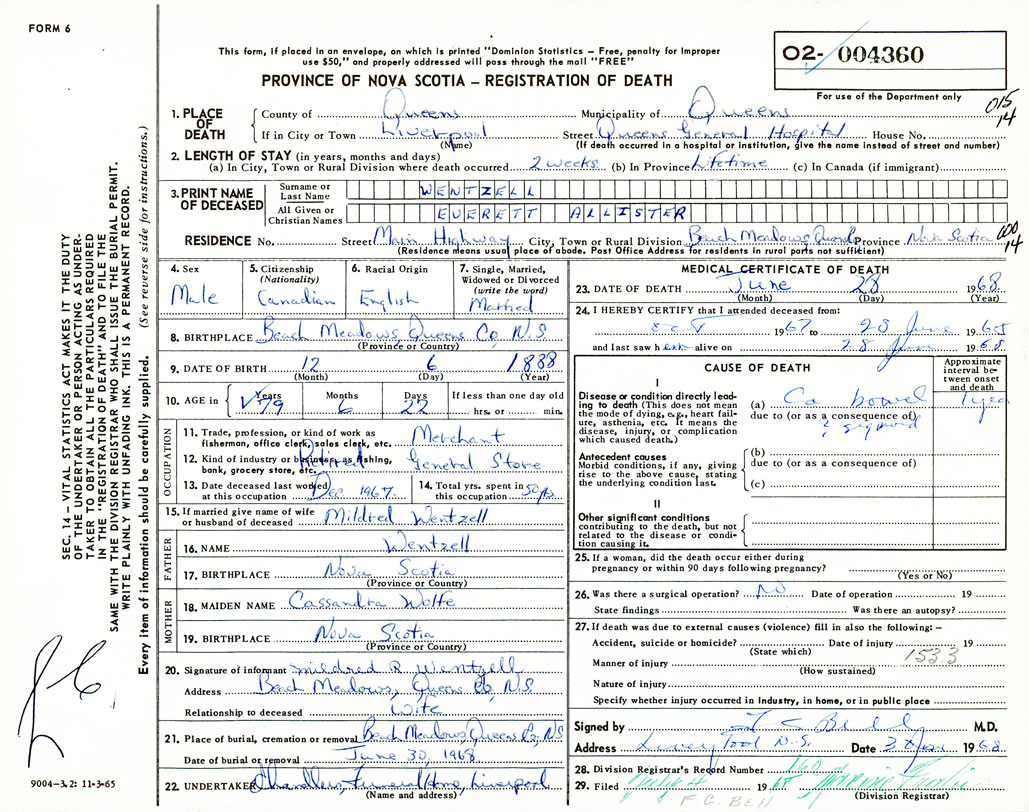 FORM 6
This form, if placed in an envelope, on which is printed "Dominion Statistics – Free, penalty for improper
use $50," and properly addressed will pass through the mail "FREE"
PROVINCE OF NOVA SCOTIA – REGISTRATION OF DEATH
02- 004360
For use of the Department only
015
14
SEC. 14 – VITAL STATISTICS ACT MAKES IT THE DUTY
OF THE UNDERTAKER OR PERSON ACTING AS UNDER-
TAKER TO OBTAIN ALL THE PARTICULARS REQUIRED
IN THE "REGISTRATION OF DEATH" AND TO FILE THE
SAME WITH THE DIVISION REGISTRAR WHO SHALL ISSUE THE BURIAL PERMIT.
WRITE PLAINLY WITH UNFADING INK. THIS IS A PERMANENT RECORD.
Every item of information should be carefully supplied. (See reverse side for instructions.)
1. PLACE OF DEATH County of Queens Municipality of Queens
If in City or Town Liverpool Street Queens General Hospital House No.
(Name) (If death occurred in a hospital or institution, give the name instead of street and number)
2. LENGTH OF STAY (in years, months and days)
(a) In City, Town or Rural Division where death occurred 2 weeks (b) In Province Lifetime (c) In Canada (if immigrant)
3. PRINT NAME OF DECEASED Surname or Last Name WENTZELL
All Given or Christian Names EVERETT ALLISTER
RESIDENCE No. Street Main Highway City, Town or Rural Division Beach Meadows, Queens Province Nova Scotia 000
14
(Residence means usual place of abode. Post Office Address for residents in rural parts not sufficient)
4. Sex Male
5. Citizenship (Nationality) Canadian
6. Racial Origin English
7. Single, Married, Widowed or Divorced (write the word) Married
8. BIRTHPLACE Beach Meadows, Queens Co, N.S.
(Province or Country)
9. DATE OF BIRTH 12 6 1888
(Month) (Day) (Year)
10. AGE in Years 79 Months 6 Days 22 If less than one day old hrs. or min.
OCCUPATION
11. Trade, profession, or kind of work as fisherman, office clerk, sales clerk, etc. Merchant
12. Kind of industry or business, as fishing, bank, grocery store, etc. Retired General Store
13. Date deceased last worked at this occupation Dec. 1967
14. Total yrs. spent in this occupation 50 yrs.
15. If married give name of wife or husband of deceased Mildred Wentzell
FATHER
16. NAME Wentzell
17. BIRTHPLACE Nova Scotia
(Province or Country)
MOTHER
18. MAIDEN NAME Cassandra Wolfe
19. BIRTHPLACE Nova Scotia
(Province or Country)
20. Signature of informant Mildred R. Wentzell
Address Beach Meadows, Queens Co, N.S.
Relationship to deceased Wife
21. Place of burial, cremation or removal Beach Meadows Queens Co, N.S
Date of burial or removal June 30, 1968
22. UNDERTAKER Chandlers Funeral Home, Liverpool
(Name and address)
9004-3.2: 11-3-65
MEDICAL CERTIFICATE OF DEATH
23. DATE OF DEATH June 28 1968
(Month) (Day) (Year)
24. I HEREBY CERTIFY that I attended deceased from:
Oct 1967 to 28 June 1968
and last saw him alive on 28 June 1968
CAUSE OF DEATH
Approximate interval between onset and death
I
Disease or condition directly leading to death (This does not mean the mode of dying, e.g., heart failure, asthenia, etc. It means the disease, injury, or complication which caused death.)
(a) Ca bowel 1 year
due to (or as a consequence of)
sigmoid
Antecedent causes
Morbid conditions, if any, giving rise to the above cause, stating the underlying condition last.
(b)
due to (or as a consequence of)
(c)
II
Other significant conditions
contributing to the death, but not related to the disease or condition causing it.
25. If a woman, did the death occur either during
pregnancy or within 90 days following pregnancy?
(Yes or No)
26. Was there a surgical operation? No Date of operation 19
State findings Was there an autopsy?
27. If death was due to external causes (violence) fill in also the following: –
Accident, suicide or homicide? Date of injury 19
(State which) 153.3
Manner of injury
(How sustained)
Nature of injury
Specify whether injury occurred in Industry, in home, or in public place
Signed by F C Bell M.D.
Address Liverpool N.S. Date 1968
28. Division Registrar's Record Number 160
29. Filed 1968
F.C. BELL (Division Registrar)